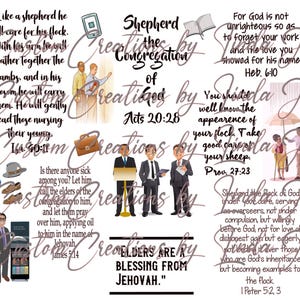 Like a shepherd he
will care for his flock.
With his arm he will
gather together the
lambs, and in his
bosom he will carry
them. He will gently
lead those nursing
their young.
Isa. 40:11
Shepherd
the
Congregation
of
God
Acts 20:28
For God is not
unrighteous so as
to forget your work
and the love you
showed for his name
Heb. 6:10
You should
well know the
appearance of
your flock. Take
good care of
your sheep.
Prov. 27:23
Is there anyone sick
among you? Let him
call the elders of the
congregation to him,
and let them pray
over him, applying oil
to him in the name of
Jehovah.
James 5:14
"ELDERS ARE A
BLESSING FROM
JEHOVAH."
Shepherd the flock of God
under your care, serving
as overseers, not under
compulsion, but willingly
before God; not for love of
dishonest gain, but eagerly;
not lording it over those
who are God's inheritance,
but becoming examples to
the flock.
1 Peter 5:2, 3
Custom Creations by Juanda
Custom Creations by Juanda
Custom Creations by Juanda